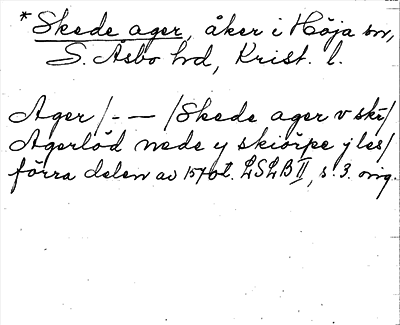 * Skede ager, åker i Höja sn,
S. Åsbo hd, Krist. l.
Ager /- — /Skede ager v skr/
Agerlöd nede y skiörpe j les/
förra delen av 15/00t. LSLB II, s. 3. orig.